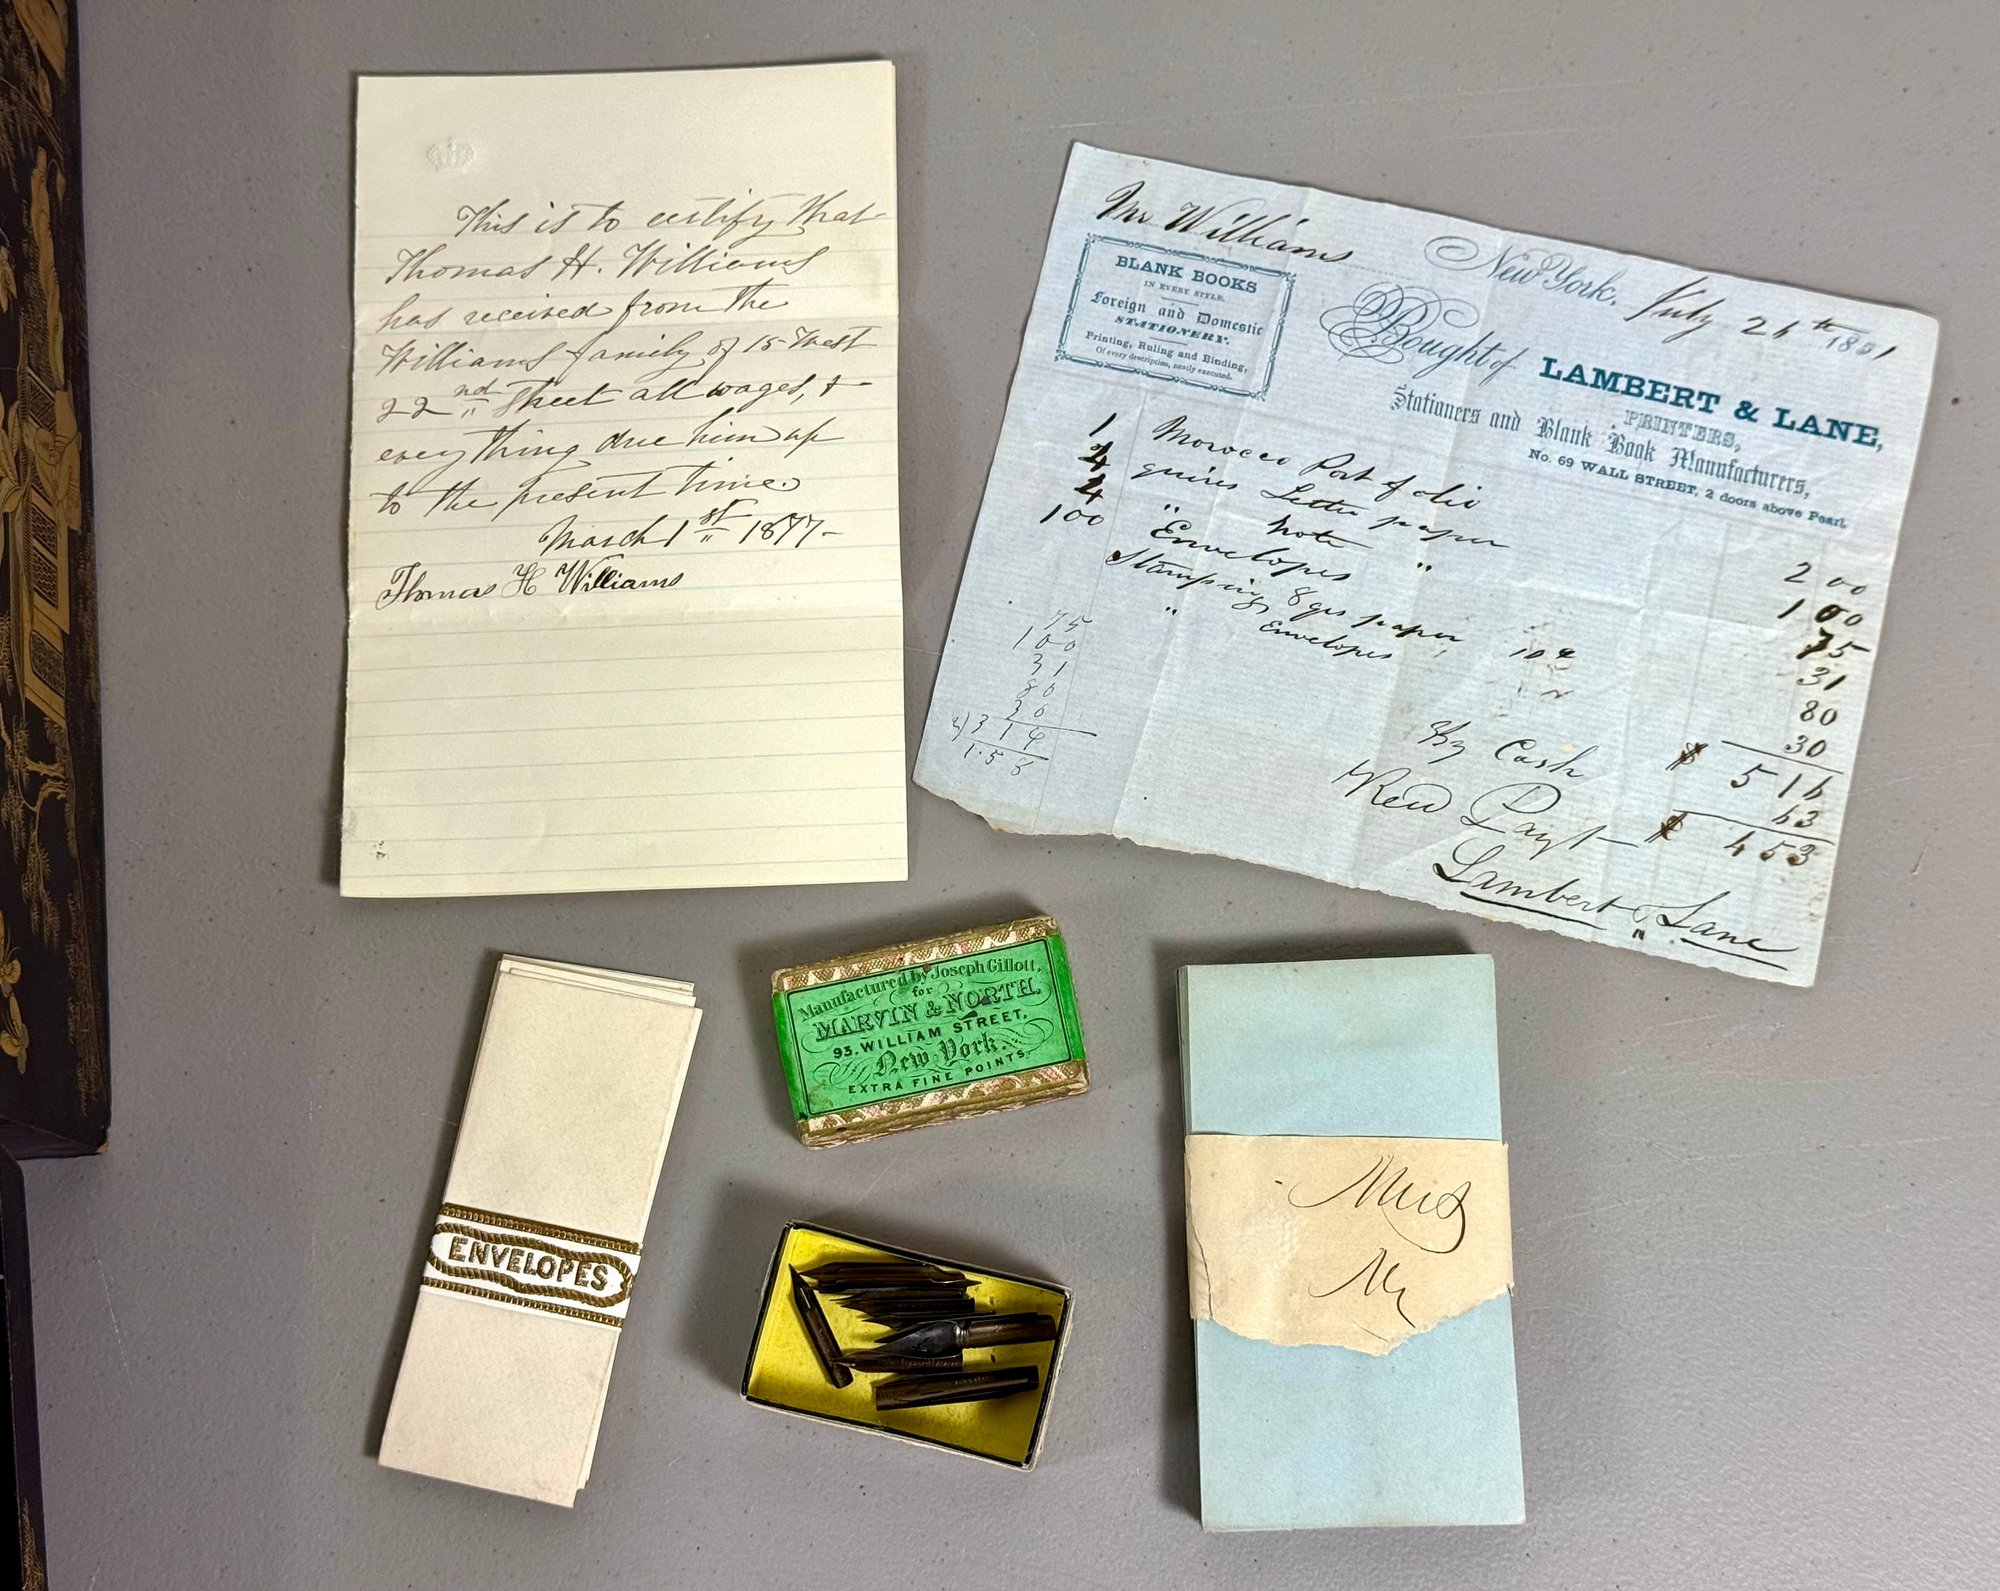 This is to certify that
Thomas H. Williams
has received from the
Williams family of 15 West
22nd Street all wages, &
everything due him up
to the present time.
March 1st 1877-
Thomas H Williams
Mr Williams
New York. July 26th 1851
BLANK BOOKS
IN EVERY STYLE.
Foreign and Domestic
STATIONERY.
Printing, Ruling and Binding,
Of every description, neatly executed.
Bought of LAMBERT & LANE,
PRINTERS,
Stationers and Blank Book Manufacturers,
No. 69 WALL STREET, 2 doors above Pearl.
1 Morocco Port folio 2 00
4 quires Letter paper 1 00
4 " Note " 75
100 Envelopes 31
Stamping 8 qrs paper 10¢ 80
" Envelopes 30
$ 5 16
By Cash 63
$ 4 53
Recd Payt
Lambert & Lane
75
1 00
31
80
30
2) 3 1 6
1.5 8
Manufactured by Joseph Gillott,
for
MARVIN & NORTH,
93, WILLIAM STREET,
New York.
EXTRA FINE POINTS.
ENVELOPES
Mr